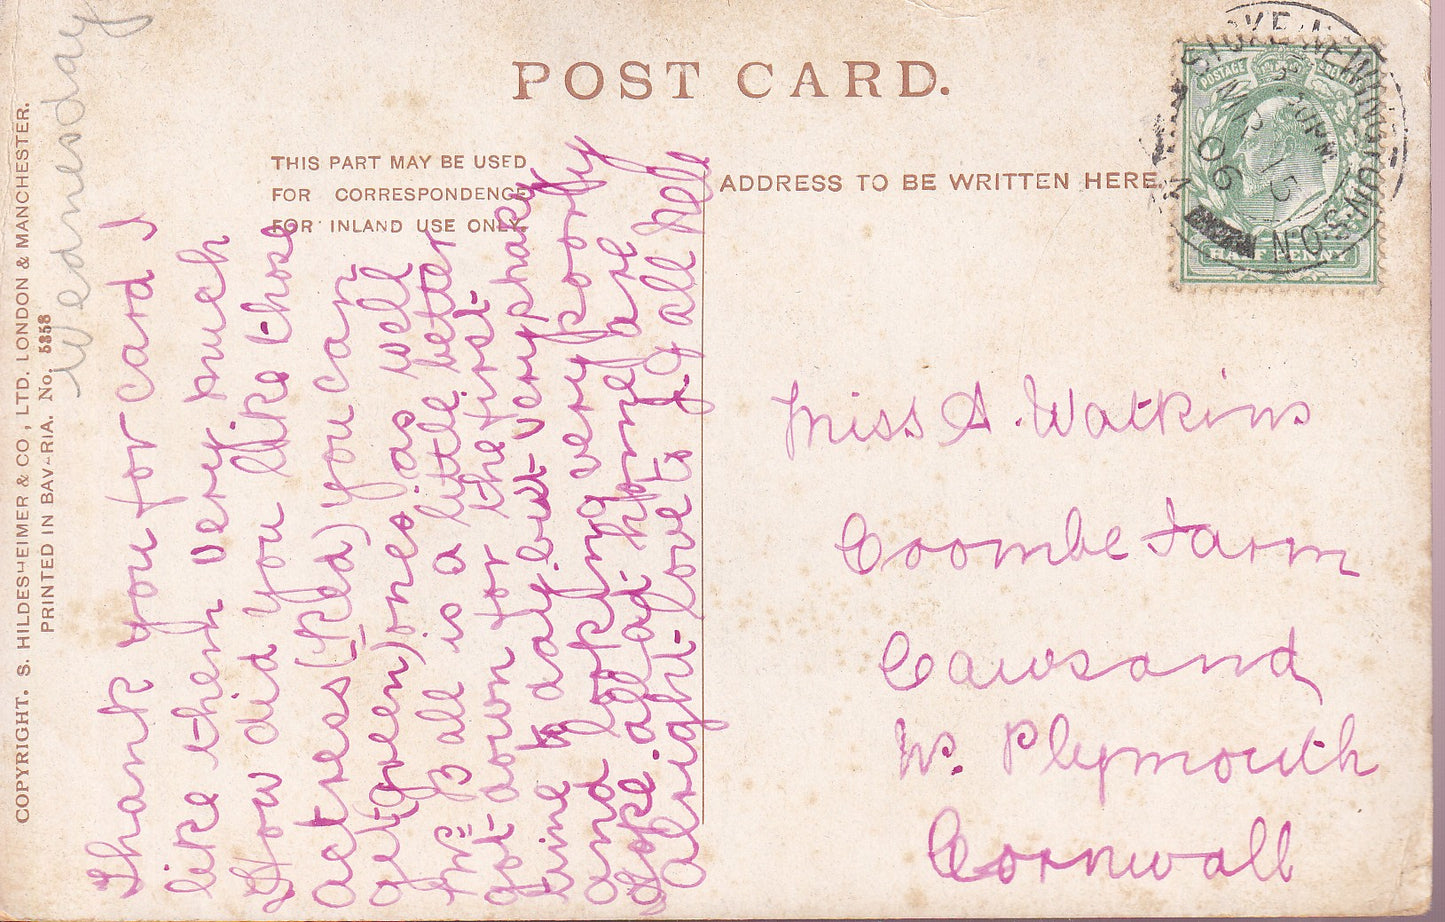 POST CARD.
THIS PART MAY BE USED
FOR CORRESPONDENCE
FOR INLAND USE ONLY.
ADDRESS TO BE WRITTEN HERE.
COPYRIGHT. S. HILDESHEIMER & CO., LTD. LONDON & MANCHESTER.
PRINTED IN BAVARIA. No. 5358
Wednesday
Thank you for card I
like them very much
How did you like those
actress (red) you can
get (green) ones as well
Mr B all is a little better
got down for the first
time to day but very shakey
and looking very poorly
Hope all at home are
alright love to
all Nell
Miss A. Watkins
Coombe Farm
Cawsand
Nr. Plymouth
Cornwall
STOKE NEWINGTON
MR 15
06
S.O. N.
POSTAGE
HALF PENNY